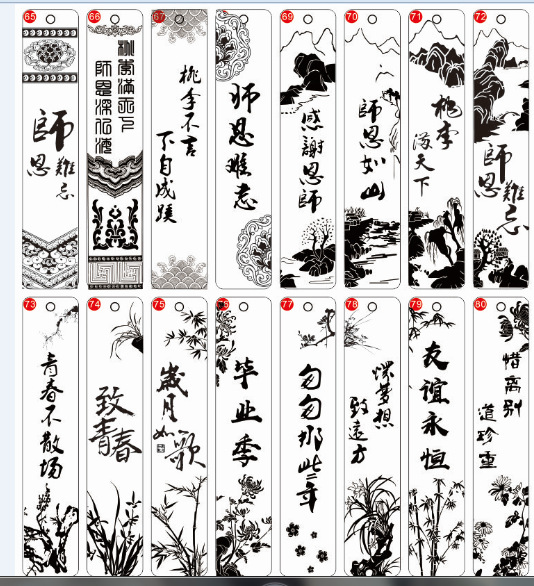 65
師恩
難忘
66
桃李滿天下
師恩深似海
67
桃李不言
下自成蹊
师恩难忘
69
感謝恩師
70
師恩如山
71
桃李
滿天下
72
師恩
難忘
73
青春不散场
74
致青春
75
歲月
如歌
76
毕业季
77
匆匆那些年
78
懷夢想
致遠方
79
友谊永恒
80
惜离别
道珍重